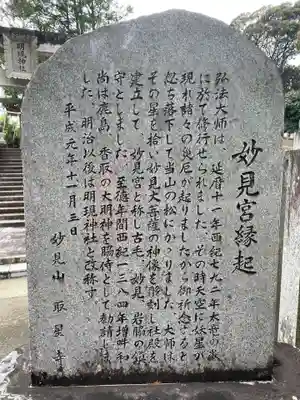 明現神社
妙見宮縁起
弘法大師は、延暦十一年西紀七九二年太竜の嶽
に於て修行せられました。その時天空に妖星が
現れ諸々の災厄が起りましたから御祈念すると
忽ち落下して当山の松にかかりました。大師は
その星を拾い妙見大菩薩の神像を彫刻し社殿を
建立して妙見宮と称し古毛、妙見、岩脇の鎮
守としました。至徳年間西紀一三八四年増吽和
尚は鹿島、香取の大明神を脇侍として勧請しま
した。明治以後は明現神社と改称す。
平成元年十一月三日
妙見山 取星寺